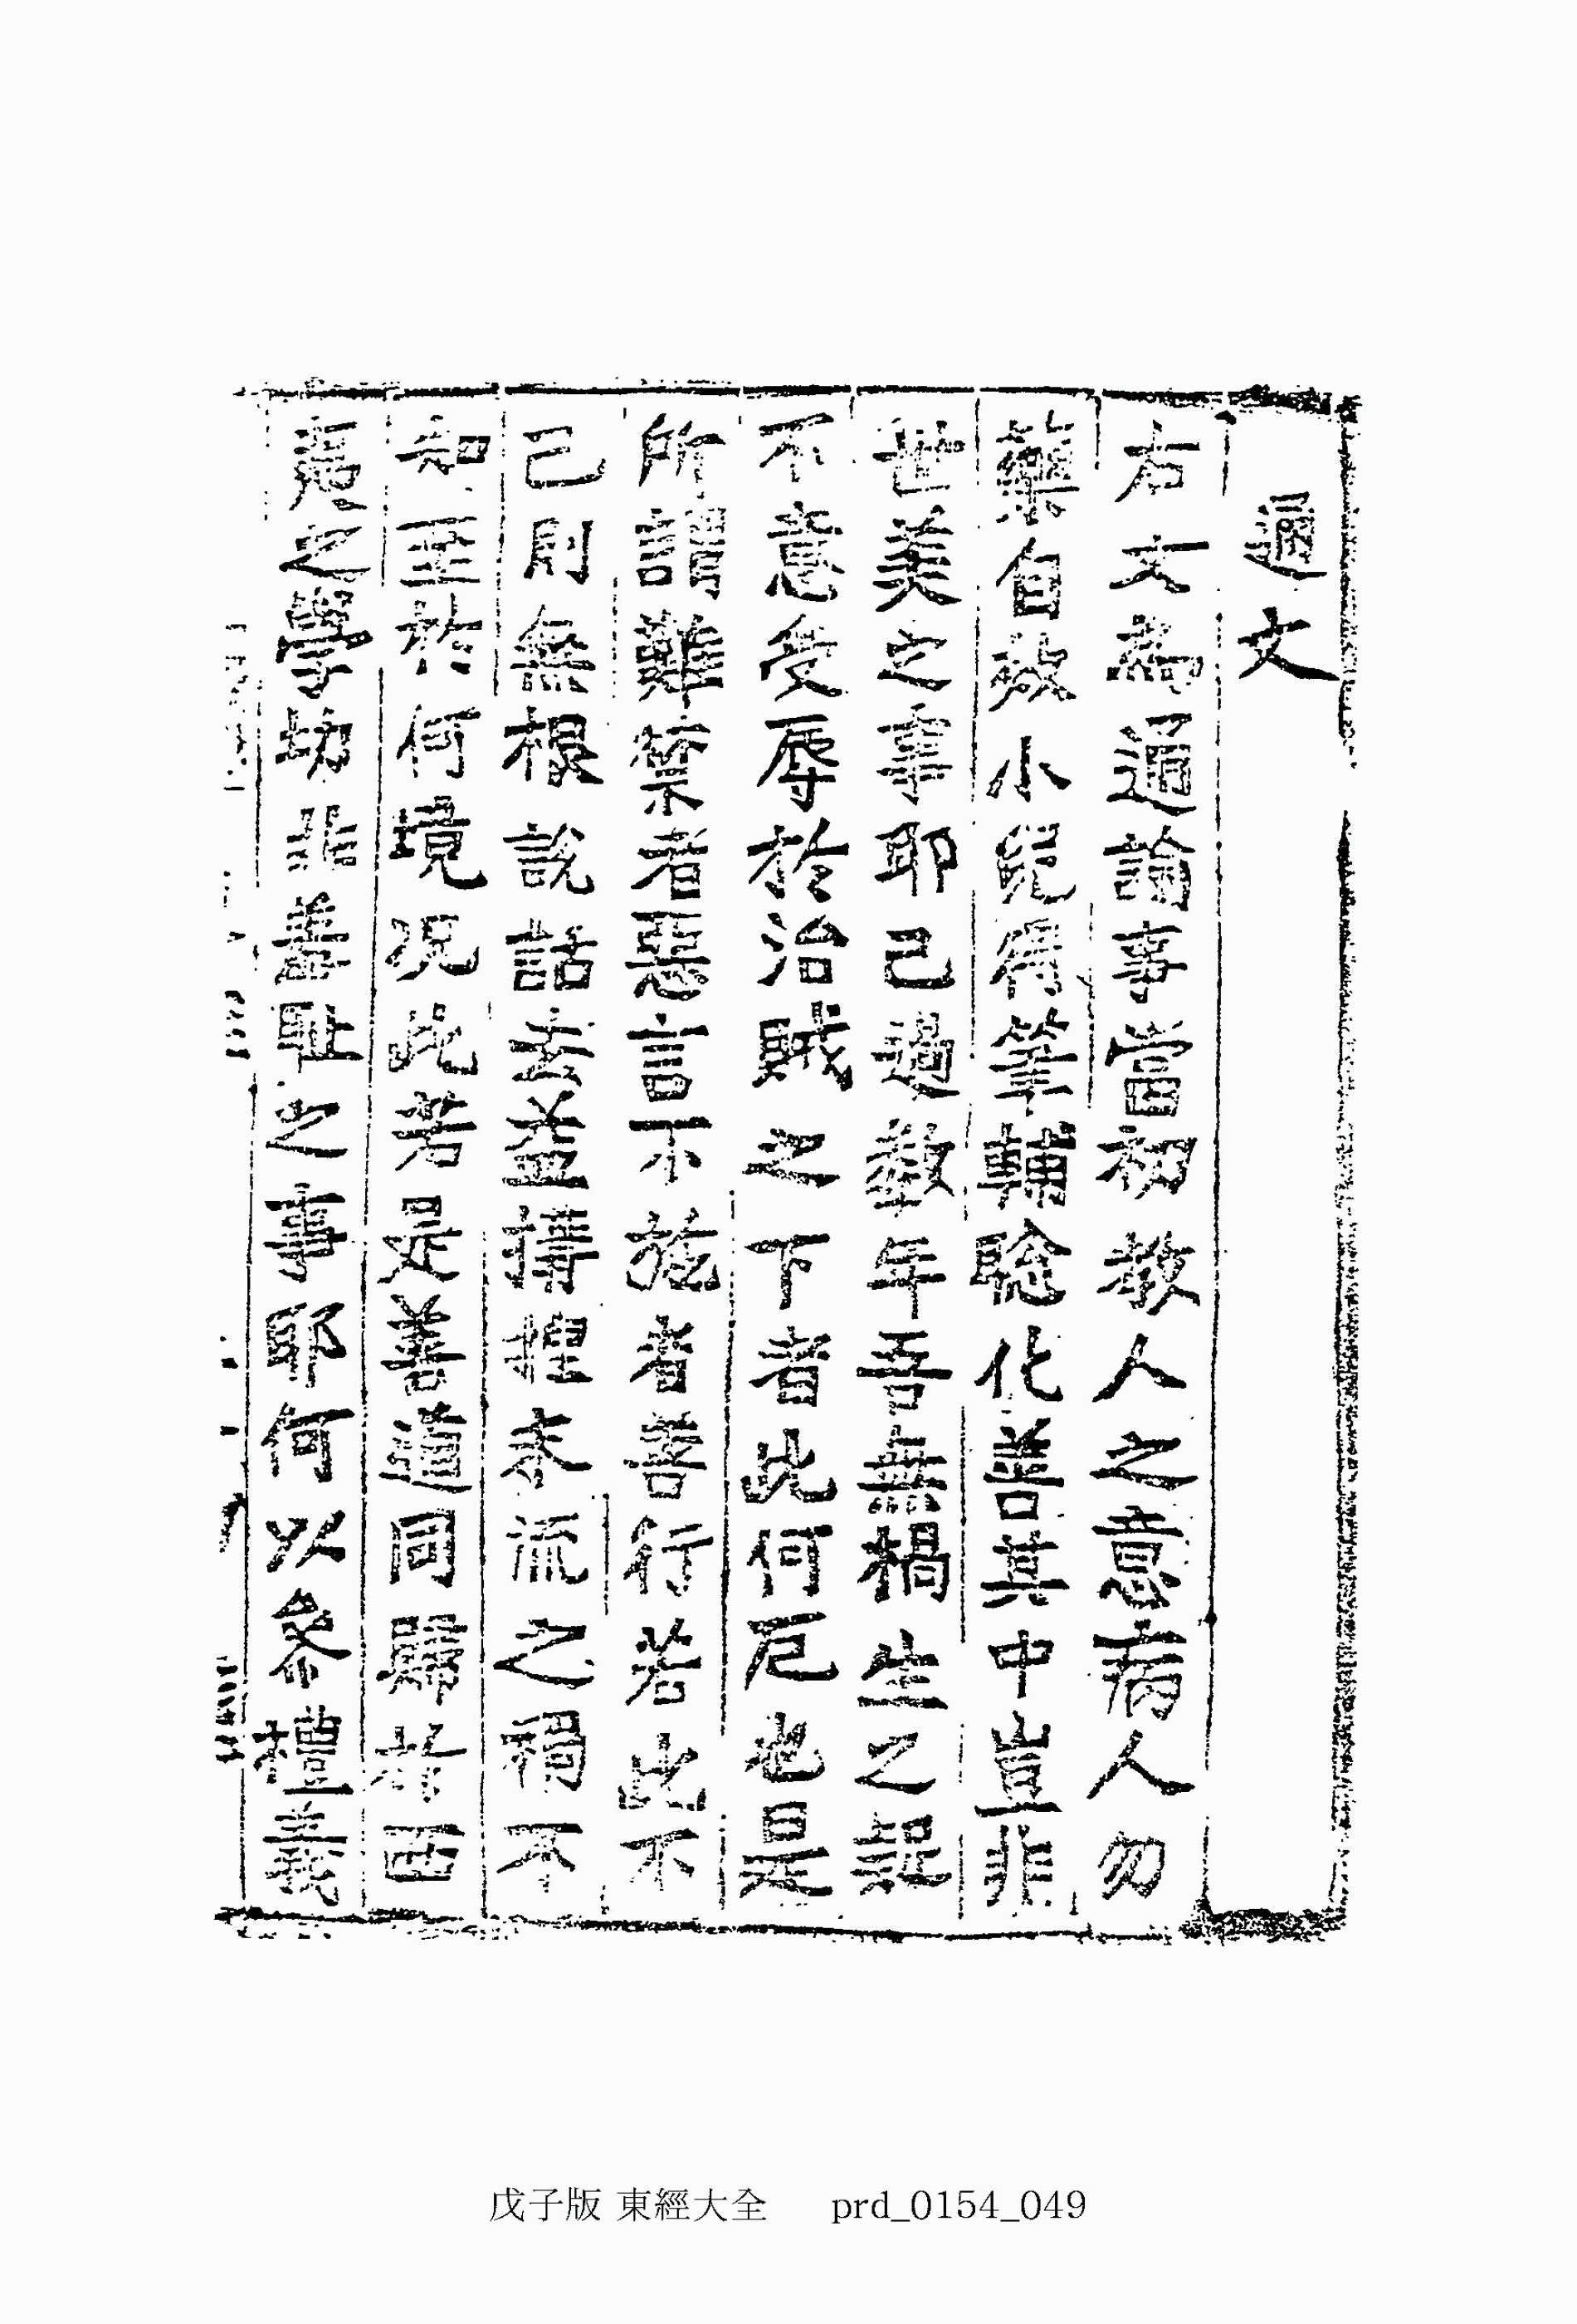 通文
右文爲通諭事當初敎人之意病人勿
藥自效小兒得筆輔聡化善其中豈非
世美之事耶已過數年吾無禍生之疑
不意受辱於治賊之下者此何厄也是
所謂難禁者惡言不施者善行若此不
已則無根說話去益搆捏末流之禍不
知至於何境况此若是善道同歸於西
夷之學切非羞耻之事耶何以參禮義
戊子版 東經大全 prd_0154_049